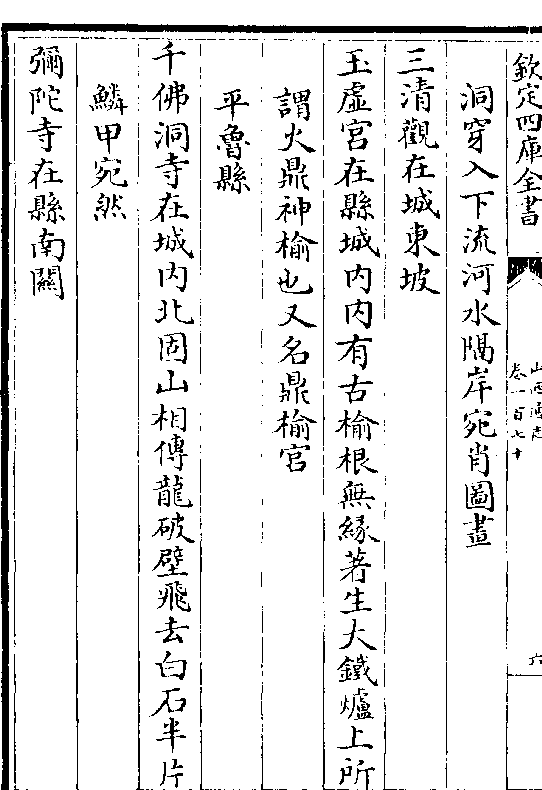 欽定四庫全書
山西通志
卷一百七十
六
洞穿入下流河水隔岸宛肖圖畫
三清觀在城東坡
玉虛宮在縣城内内有古榆根無緣著生大鐵爐上所
謂火鼎神榆也又名鼎榆宮
平魯縣
千佛洞寺在城内北固山相傳龍破壁飛去白石半片
鱗甲宛然
彌陀寺在縣南關